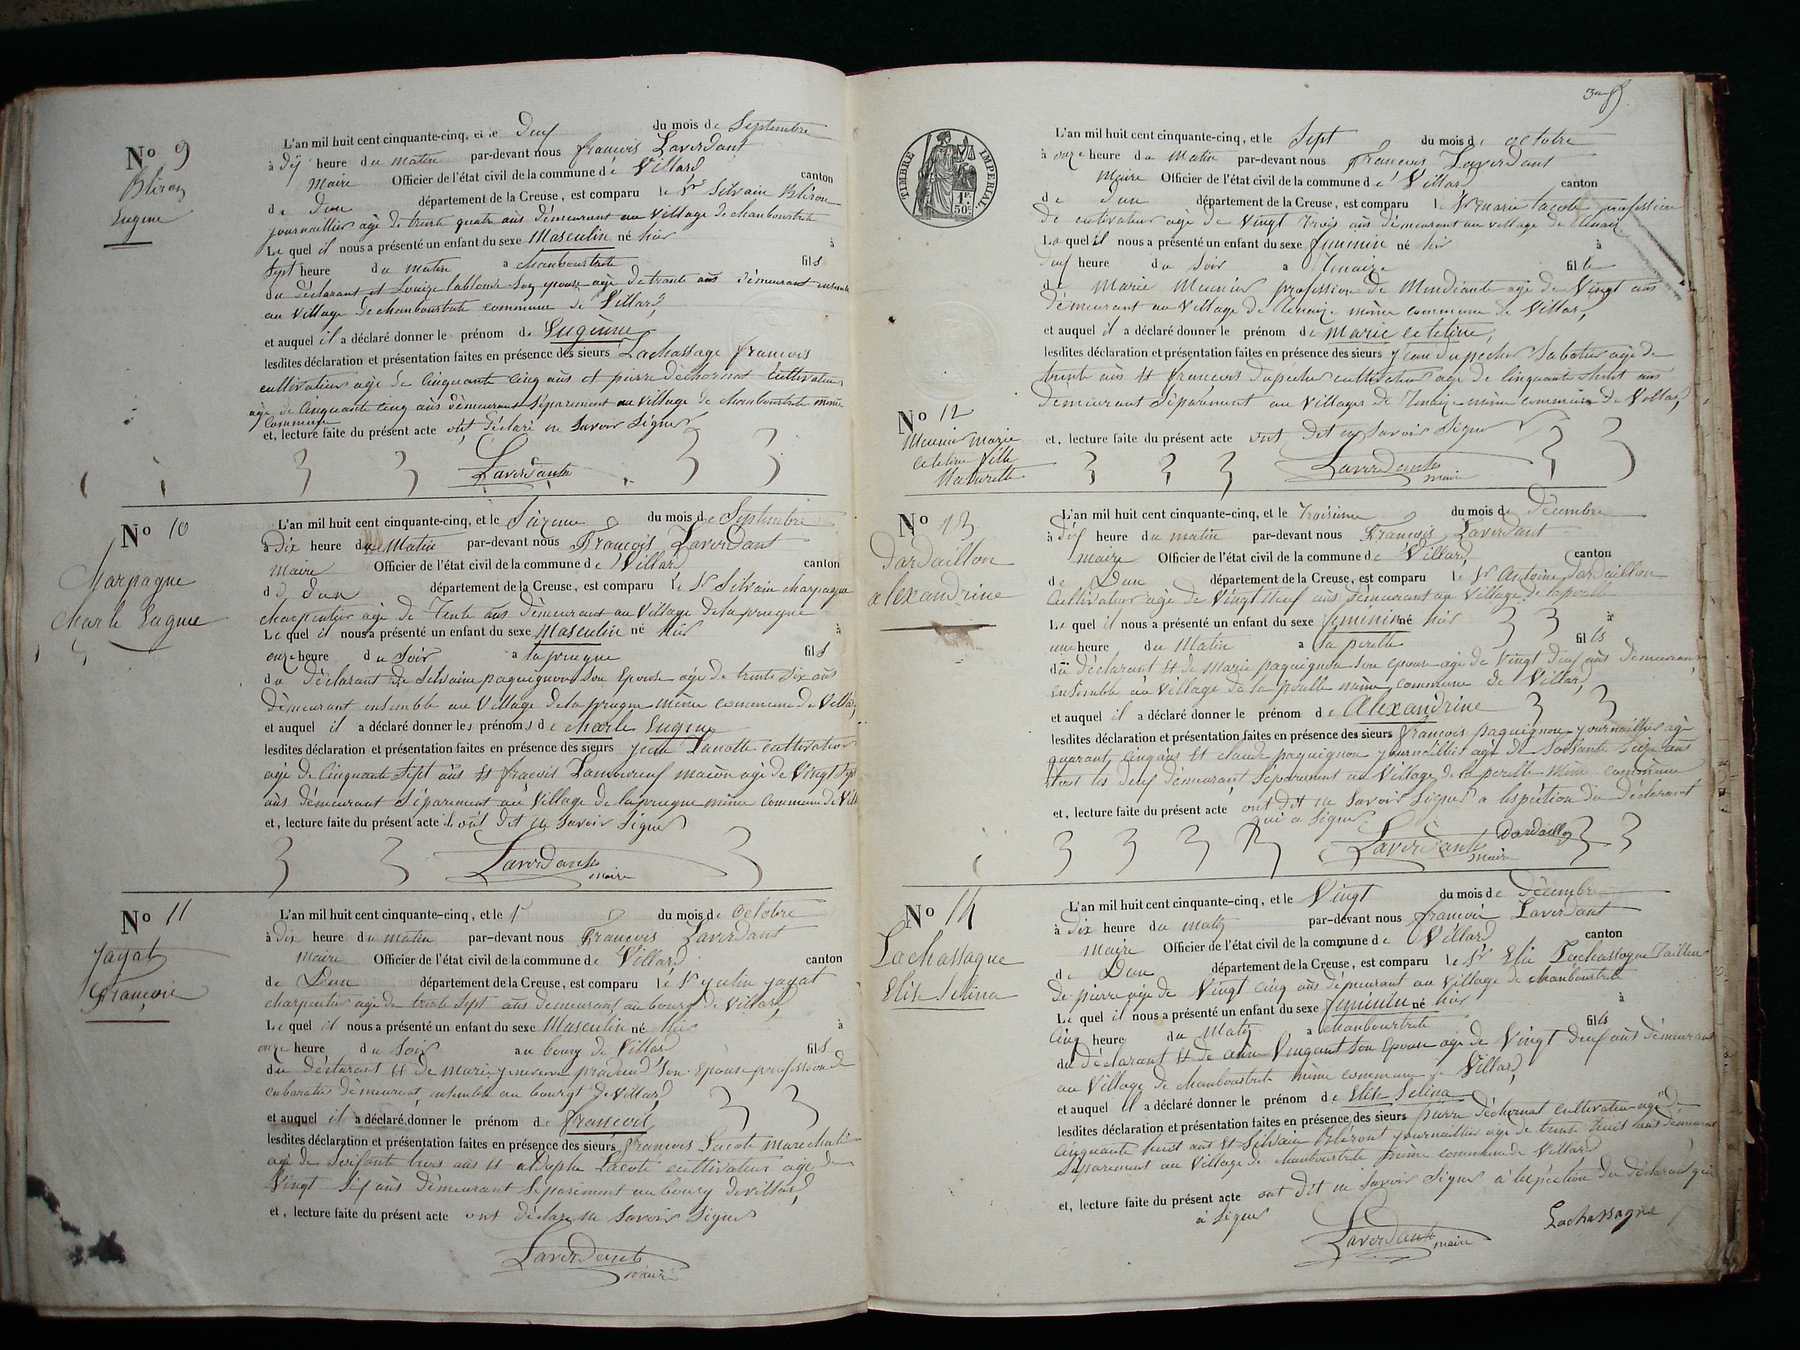 No 9
Bliron
Eugène
L'an mil huit cent cinquante-cinq, et le deux du mois de Septembre
à dix heure du matin par-devant nous françois Laverdant
Maire Officier de l'état civil de la commune de Villard canton
de Dun département de la Creuse, est comparu le Sr Silvain Bliron
journaillier âgé de trente quatre ans demeurant au village de chanboustrete
Le quel il nous a présenté un enfant du sexe Masculin né hier à
Sept heure du matin a chanboustrete fils
du déclarant et Louise son epouse age de trante ans demeurant ensemble
au village de chanboustrete commune de Villard,
et auquel il a déclaré donner le prénom de Eugènne
lesdites déclaration et présentation faites en présence des sieurs Lachassage françois
cultivateur age de Cinquante Cinq ans et pierre déchornat cultivateur
age de Cinquante Cinq ans démeurant séparement au village de chanboustrete même
commune
et, lecture faite du présent acte ont déclaré ne Savoir Signer
Laverdant
No 10
Charpagne
Charle Eugene
L'an mil huit cent cinquante-cinq, et le Sizeme du mois de Septembre
à Dix heure du Matin par-devant nous François Laverdant
Maire Officier de l'état civil de la commune de Villard canton
de Dun département de la Creuse, est comparu le Sr Silvain charpagne
charpentier age de Tente ans demeurant au village de la prugne
Le quel il nous a présenté un enfant du sexe Masculin né hier à
onze heure du Soir a la prugne fils
du déclarant de Silvaine paquignon son Epouse age de trente Dix ans
démeurant ensemble au Village de la prugne même commune de Villard,
et auquel il a déclaré donner les prénoms de charle Eugene
lesdites déclaration et présentation faites en présence des sieurs jean Lanotte cultivateur
age de Cinquante Sept ans et fracois Lamoureux macon age de Vingt Sept
ans démeurant Séparement au Village de la prugne même commune de Villard
et, lecture faite du présent acte ils ont dit ne Savoir Signer
Laverdant
maire
No 11
Jayat
François
L'an mil huit cent cinquante-cinq, et le 1r du mois de Octobre
à Dix heure du matin par-devant nous François Laverdant
maire Officier de l'état civil de la commune de Villard canton
de Dun département de la Creuse, est comparu le Sr julin jayat
charpentier age de trente Sept ans demeurant au bourg de Villard,
Le quel il nous a présenté un enfant du sexe Masculin né hier à
onze heure du Soir au bourg de Villard fils
du déclarant et de Marie son Epouse profession de
cabaratier démeurent, ensembe au bourgt de Villard,
et auquel il a déclaré donner le prénom de françoit
lesdites déclaration et présentation faites en présence des sieurs françois Lacote marechal
age de Soisante trois ans et Lacote cultivateur age de
Vingt Six ans démeurant Séparement au bourg de villard,
et, lecture faite du présent acte ont déclaré ne Savoir Signer
Laverdant
maire
L'an mil huit cent cinquante-cinq, et le Sept du mois de octobre
à onze heure du Matin par-devant nous François Laverdant
Maire Officier de l'état civil de la commune de Villard canton
de Dun département de la Creuse, est comparu le Sr marie lacote profession
de cultivateur age de Vingt Trois ans démeurant au village de lénaiz
TIMBRE IMPERIAL
1f.
50c.
La quel il nous a présenté un enfant du sexe feminin né hier à
Deuf heure du Soir a lénaize fille
de Marie Meunier profession de Mendiante age de Vingt ans
démeurant au Village de lénaize même commune de Villar,
et auquel il a déclaré donner le prénom de Marie celeline,
lesdites déclaration et présentation faites en présence des sieurs jean dupecher Sabotier age de
trent ans et françois dupecher cultivateur age de Cinquante Huit ans
démeurant Séparement au Village de lénaiz même commune de Villar,
No 12
Meunier marie
celeline fille
Naturelle
et, lecture faite du présent acte ont dit ne Savoir Signer
Laverdant
maire
No 13
Dardaillon
alexandrine
L'an mil huit cent cinquante-cinq, et le Troisime du mois de Décembre
à Dix heure du matin par-devant nous François Laverdant
maire Officier de l'état civil de la commune de Villard canton
de Dun département de la Creuse, est comparu le Sr Antoine Dardaillon
Cultivateur age de Vingt Neuf ans demeurant au Village de la perelle
Le quel il nous a présenté un enfant du sexe feminin né hier à
une heure du Matin a la perelle fills
du déclarant et de Marie paquignon son epouse age de Vingt Deux ans démeurant
ensemble au village de la perelle même commune de Villard,
et auquel il a déclaré donner le prénom de Alexandrine
lesdites déclaration et présentation faites en présence des sieurs François paquignon journaillier age
quarant Cinq ans et claude paquignon journaillier age de Soisante ans
tous les deux démeurant Séparement au Village de la perelle même commune
et, lecture faite du présent acte ont dit ne Savoir Signer a lexpection du Déclarant
qui a Signer
Laverdant Dardaillon
maire
No 14
Lachassagne
Elise Selina
L'an mil huit cent cinquante-cinq, et le Vingt du mois de Décembre
à Dix heure du matin par-devant nous françois Laverdant
Maire Officier de l'état civil de la commune de Villard canton
de Dun département de la Creuse, est comparu le Sr Elie Lachassagne Tailleur
de pierre age de Vingt Cinq ans démeurant au Village de chanboustrete
Le quel il nous a présenté un enfant du sexe feminin né hier à
Cinq heure du Matin a chanboustrete fills
du déclarant et de anne Vingant Son Epouse age de Vingt Deux ans démeurant
au Village de chanboustrete même commune de Villard,
et auquel il a déclaré donner le prénom de Elise Selina
lesdites déclaration et présentation faites en présence des sieurs pierre déchornat cultivateur age de
Cinquante huit ans et Silvain Bléront journaillier age de trente Huit ans démeurant
Séparement au Village de chanboustrete même commune de Villard
et, lecture faite du présent acte ont dit ne Savoir Signer à lexpection du déclarant qui
à Signer
Laverdant maire
Lachassagne